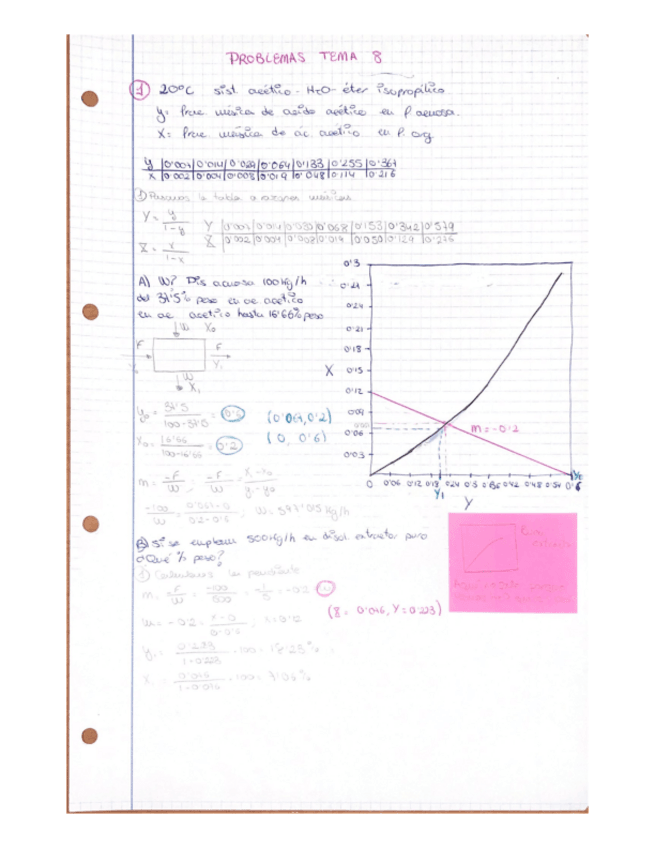 PROBLEMAS TEMA 8
1 20°C sist. acético - H2O - éter isopropílico
y: Frac. másica de ácido acético en F. acuosa.
x: Frac. másica de ác. acético en F. org
y 0'007 0'014 0'029 0'064 0'133 0'255 0'367
x 0'002 0'004 0'008 0'019 0'048 0'114 0'216
① Pasamos la tabla a razones másicas
Y = y / 1-y
Y 0'007 0'014 0'030 0'068 0'153 0'342 0'579
X 0'002 0'004 0'008 0'019 0'050 0'129 0'276
X = x / 1-x
A) W? Dis acuosa 100 kg/h
del 37'5% peso en ac acético
en ac acético hasta 16'66% peso
W X0
F F
Y1
W
X1
y0 = 37'5 / 100-37'5 = 0'6 (0'067, 0'2)
= 16'66 / 100-16'66 = 0'2 (0, 0'6)
m = -F / W ; -F / W = X-X0 / Y-Y0
-100 / W = 0'067-0 / 0'2-0'6 ; W = 597'015 kg/h
B) Si se emplean 500 kg/h en disol. extractor puro
¿Qué % peso?
① Calculamos la pendiente
m = -F / W = -100 / 500 = -1 / 5 = -0'2
m = -0'2 = X-0 / 0-0'6 ; X = 0'12
(X = 0'076, Y = 0'223)
Y1 = 0'223 / 1+0'223 · 100 = 18'23%
X1 = 0'076 / 1+0'076 · 100 = 7'06%
0'3
0'27
0'24
0'21
0'18
X 0'15
0'12
0'09
0'06
0'03
m = -0'2
0 0'06 0'12 0'18 0'24 0'3 0'36 0'42 0'48 0'54 0'6
Y1
Y0
Y